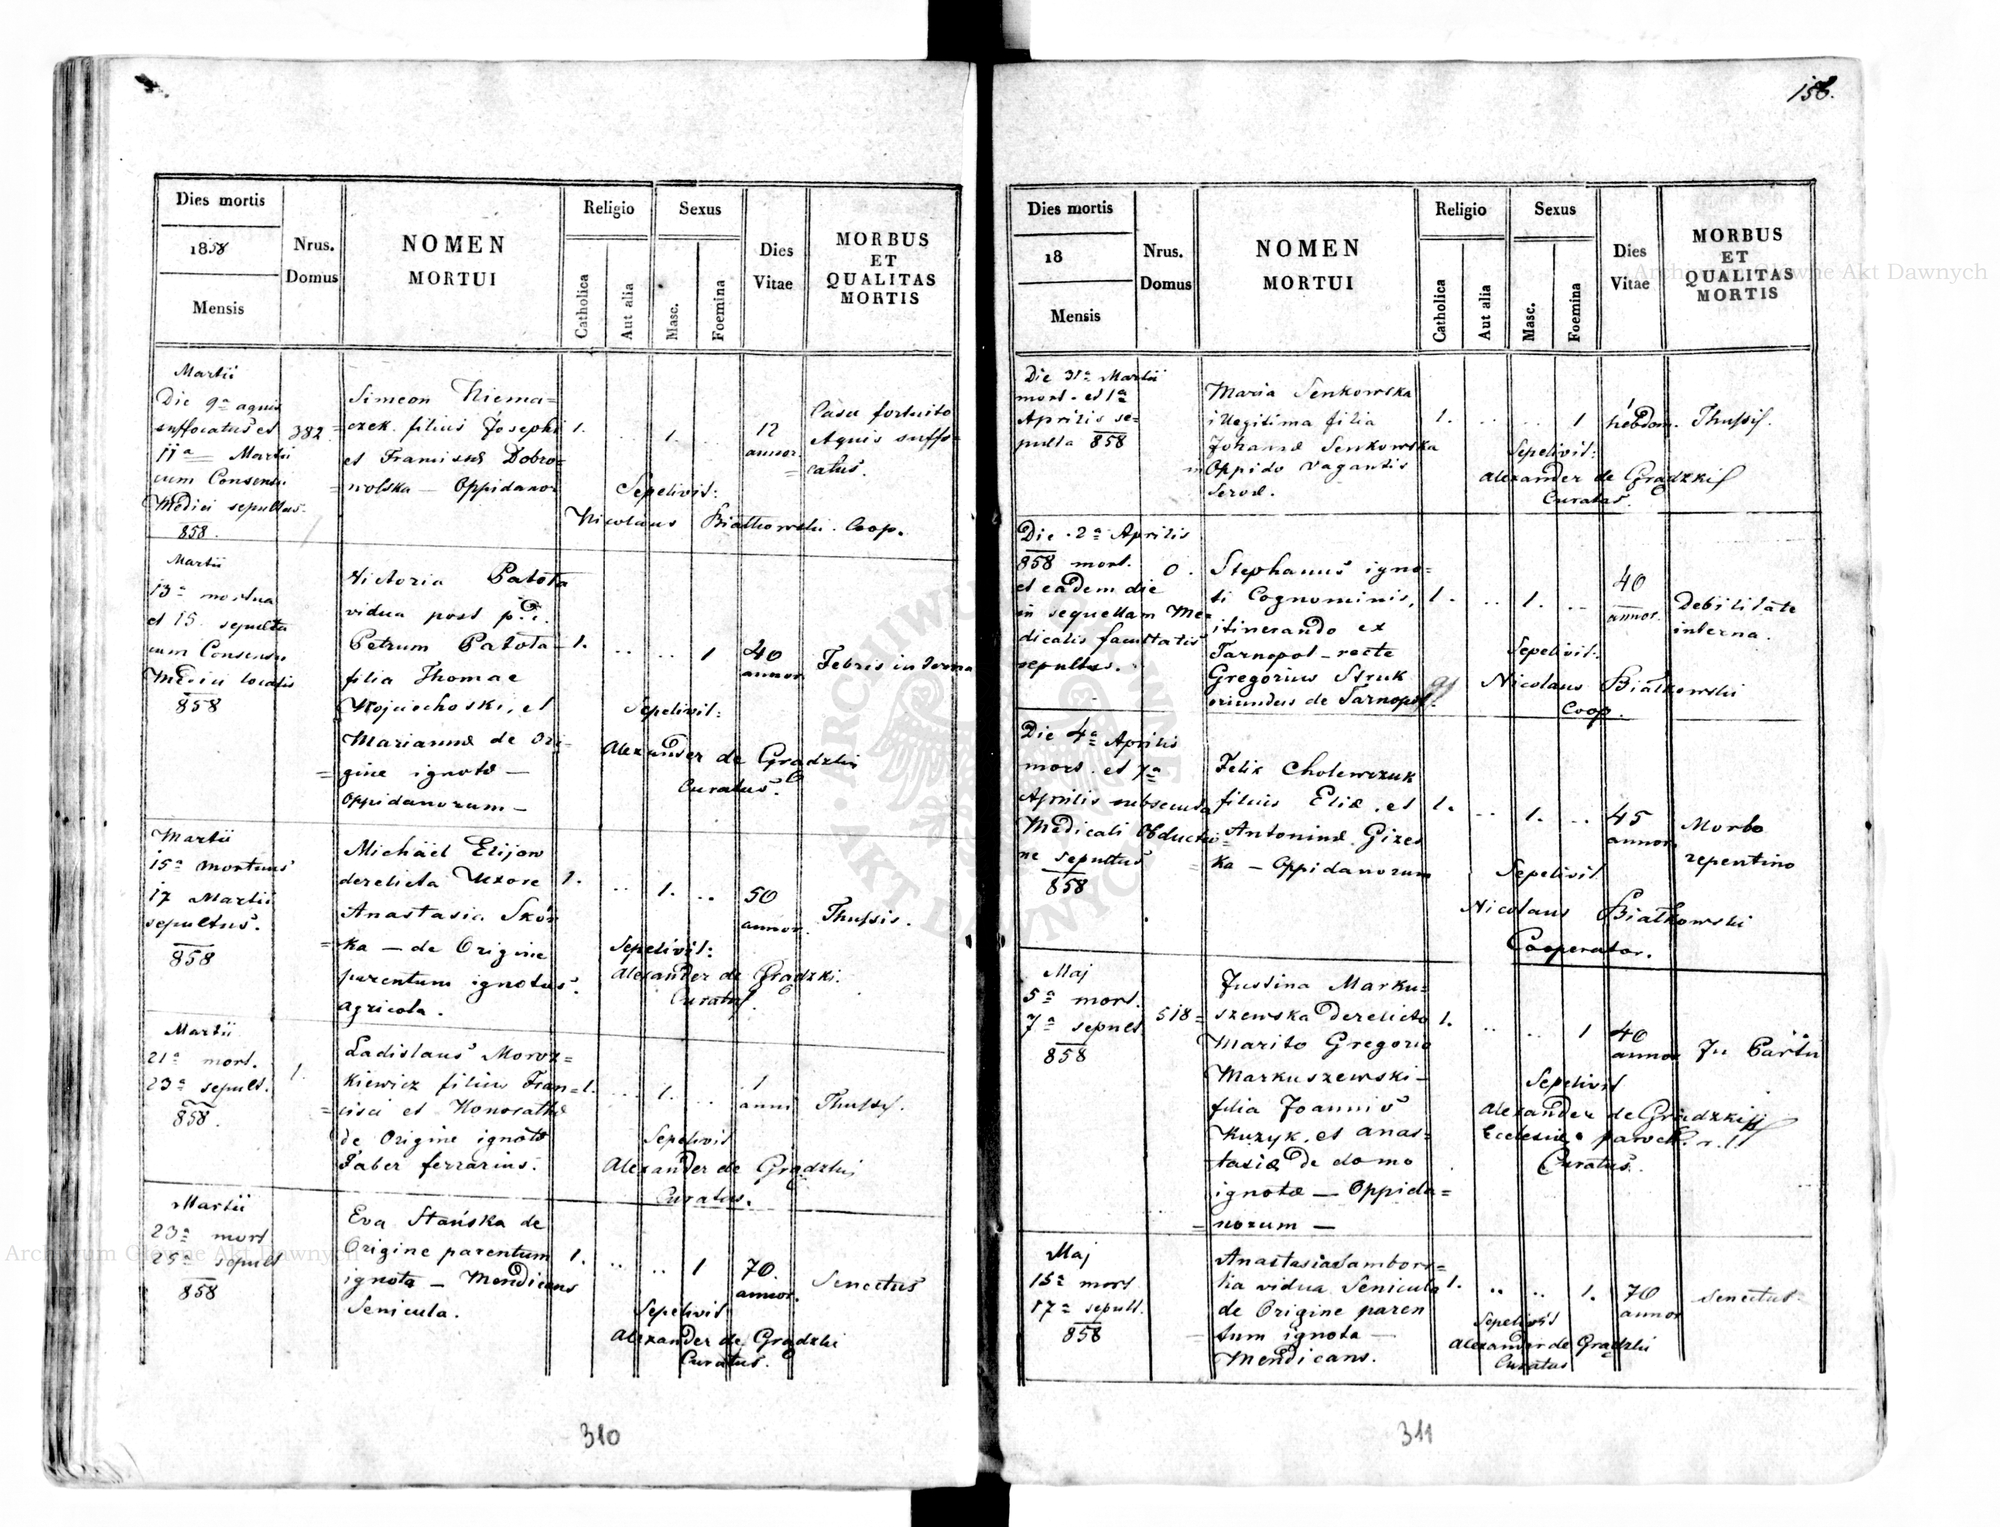 156.
Dies mortis
1858
Mensis
Nrus.
Domus
NOMEN
MORTUI
Religio
Catholica
Aut alia
Sexus
Masc.
Foemina
Dies
Vitae
MORBUS
ET
QUALITAS
MORTIS
Martii
Die 9a aquis
suffocatus et
11a Martii
cum Consensu
Medici sepultus.
858.
382
Simeon Niema=
czek filius Josephi
et Franciscæ Dobro=
wolska — Oppidanor
1.
..
1.
..
12
annor.
Casu fortuito
Aquis suffo=
catus.
Sepelivit:
Nicolaus Białkowski Coop.
Martii
13a mortua
et 15. sepulta
cum Consensu
Medici localis
858
Victoria Pałota
vidua post p.d.
Petrum Pałota
filia Thomae
Wojciechoski, et
Mariannæ de Ori=
gine ignotæ —
Oppidanorum —
1.
..
..
1
40
annor.
Febris interna
Sepelivit:
Alexander de Grądzki
Curatus.
Martii
15a Mortuus
17 Martii
sepultus.
858
Michäel Elijow
derelicta Uxore
Anastasia Skór=
ka — de Origine
parentum ignotus.
Agricola.
1.
..
1.
..
50
annor.
Thussis.
Sepelivit:
Alexander de Grądzki.
Curatus.
Martii
21a mort.
23a sepult.
858.
1.
Ladislaus Moroz=
kiewicz filius Fran=
cisci et Honorathæ
de Origine ignotæ
Faber ferrarius.
1.
..
1.
..
1
anni
Thussis.
Sepelivit
Alexander de Grądzki
Curatus.
Martii
23a mort
25a sepult
858
Eva Stańska de
Origine parentum
ignota — Mendicans
Senicula.
1.
..
..
1
70.
annor.
Senectus
Sepelivit
Alexander de Grądzki
Curatus.
310
Dies mortis
18
Mensis
Nrus.
Domus
NOMEN
MORTUI
Religio
Catholica
Aut alia
Sexus
Masc.
Foemina
Dies
Vitae
MORBUS
ET
QUALITAS
MORTIS
Die 31a Martii
mort. et 1a
Aprilis se=
pulta 858
Maria Senkowska
illegitima filia
Johannæ Senkowska
in Oppido vagantis
Servæ.
1.
..
..
1
hebdom.
Thussis.
Sepelivit:
Alexander de Grądzki
Curatus.
Die 2a Aprilis
858 mort.
et eadem die
in sequellam Me=
dicalis facultatis
sepultus.
0.
Stephanus igno=
ti Cognominis,
itinerando ex
Tarnopol — recte
Gregorius Struk
oriundus de Tarnopol.
1.
..
1.
..
40
annor.
Debilitate
interna.
Sepelivit:
Nicolaus Białkowski
Coop.
Die 4a Aprilis
mort. et 7a
Aprilis subsecuta
Medicali Obductio=
ne sepultus
858
Felix Cholewczuk
filius Eliæ, et
Antoninæ Gizes
ka — Oppidanorum
1.
..
1.
..
45
annor.
Morbo
repentino
Sepelivit
Nicolaus Białkowski
Cooperator.
Maj
5a mort.
7a sepult
858
518
Justina Marku=
szewska derelicto
Marito Gregorio
Markuszewski —
filia Joannis
Kuzyk, et Anas=
tasiæ de domo
ignotæ — Oppida=
norum —
1.
..
..
1
40
annor
In Partu
Sepelivit
Alexander de Grądzki
Ecclesiæ paroch. r. l.
Curatus.
Maj
15a mort
17a sepult.
858
Anastasia Sambors=
ka vidua Senicula
de Origine paren
tum ignota —
Mendicans.
1.
..
..
1.
70
annor
Senectus.
Sepelivit
Alexander de Grądzki
Curatus
311
Archiwum Główne Akt Dawnych
Archiwum Główne Akt Dawnych
ARCHIWUM GŁÓWNE AKT DAWNYCH